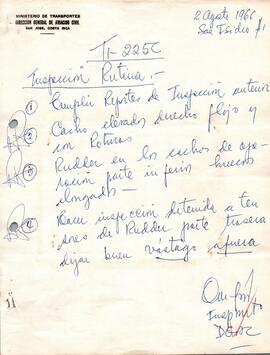 MINISTERIO DE TRANSPORTES
DIRECCION GENERAL DE AVIACION CIVIL
SAN JOSE, COSTA RICA
2 Agosto 1966
San Isidro #1
TI-225C
Inspección Rutina.-
1 Cumplir Reportes de Inspección anterior
2 Cacho elevador derecho flojo y
con Roturas
3 Rudder en los cachos de ope-
ración parte inferior huecos
alongados-
4 Hacer inspección detenida a ten
sores de Rudder parte trasera
dejar buen vástago afuera
Inspector
DGAC